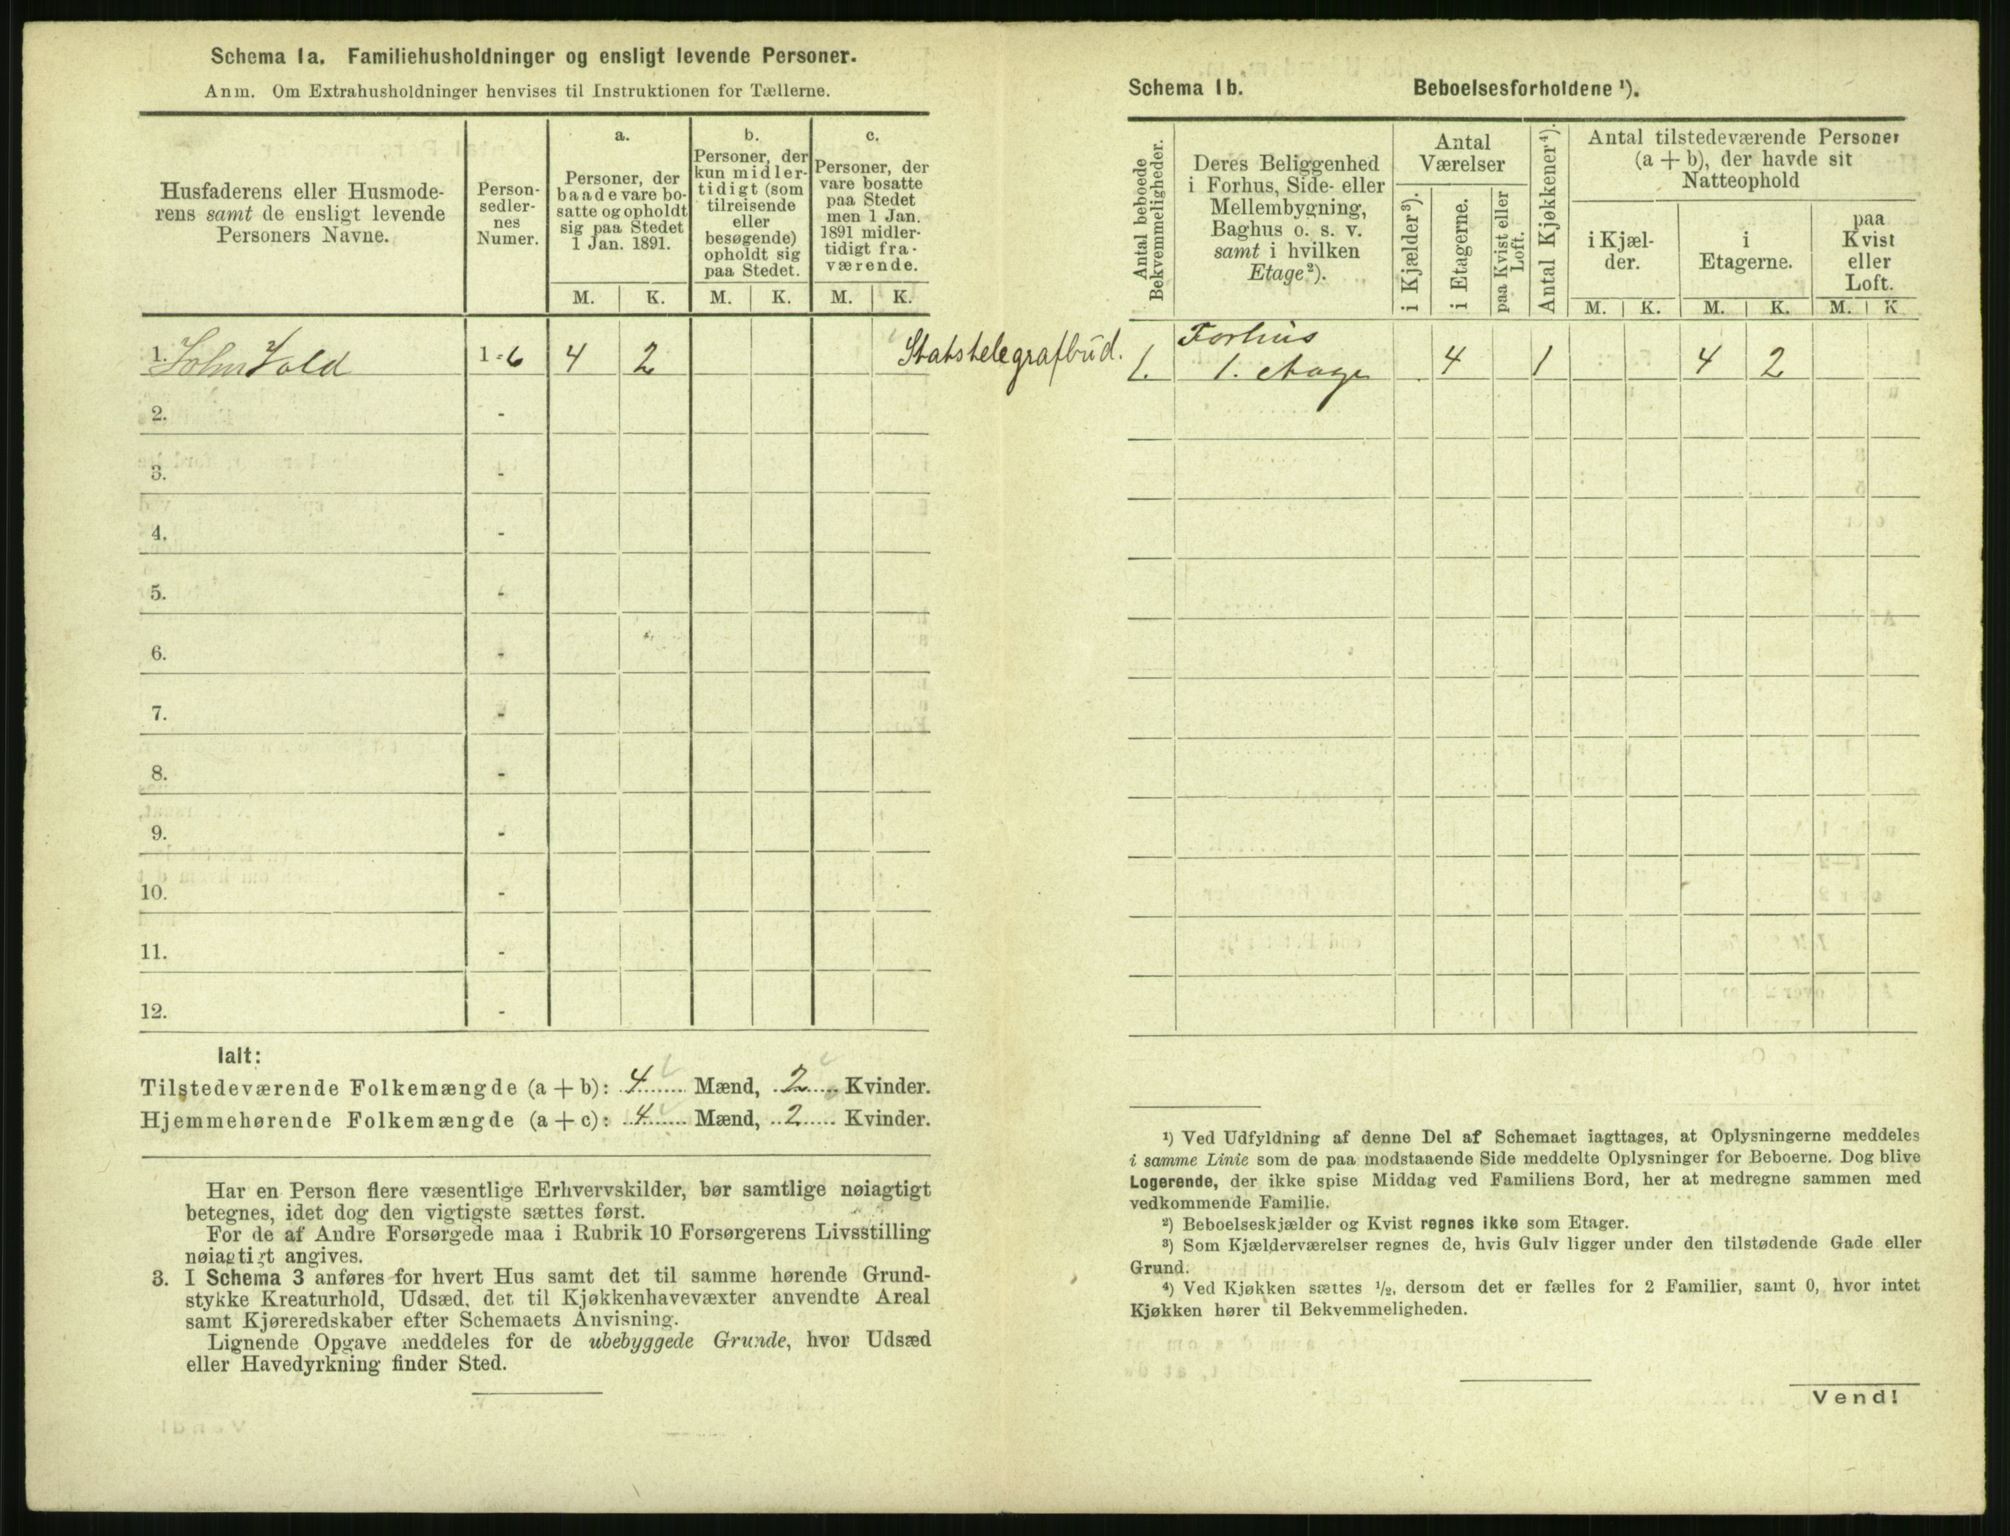 Schema 1a. Familiehusholdninger og ensligt levende Personer.
Anm. Om Extrahusholdninger henvises til Instruktionen for Tællerne.
Husfaderens eller Husmode-
rens samt de ensligt levende
Personers Navne.
Person-
sedler-
nes
Numer.
a.
Personer, der
baade vare bo-
satte og opholdt
sig paa Stedet
1 Jan. 1891.
b.
Personer, der
kun midler-
tidigt (som
tilreisende
eller
besøgende)
opholdt sig
paa Stedet.
c.
Personer, der
vare bosatte
paa Stedet
men 1 Jan.
1891 midler-
tidigt fra-
værende.
M. K. M. K. M. K.
1. John Vold 1-6 4 2 Statstelegrafbud.
2. -
3. -
4. -
5. -
6. -
7. -
8. -
9. -
10. -
11. -
12. -
Ialt:
Tilstedeværende Folkemængde (a + b): 4 Mænd, 2 Kvinder.
Hjemmehørende Folkemængde (a + c): 4 Mænd, 2 Kvinder.
Har en Person flere væsentlige Erhvervskilder, bør samtlige nøiagtigt
betegnes, idet dog den vigtigste sættes først.
For de af Andre Forsørgede maa i Rubrik 10 Forsørgerens Livsstilling
nøiagtigt angives.
3. I Schema 3 anføres for hvert Hus samt det til samme hørende Grund-
stykke Kreaturhold, Udsæd, det til Kjøkkenhavevæxter anvendte Areal
samt Kjøreredskaber efter Schemaets Anvisning.
Lignende Opgave meddeles for de ubebyggede Grunde, hvor Udsæd
eller Havedyrkning finder Sted.
Schema 1b. Beboelsesforholdene ¹).
Antal beboede
Bekvemmeligheder.
Deres Beliggenhed
i Forhus, Side- eller
Mellembygning,
Baghus o. s. v.
samt i hvilken
Etage²).
Antal
Værelser
i Kjælder³).
i Etagerne.
paa Kvist eller
Loft.
Antal Kjøkkener⁴).
Antal tilstedeværende Personer
(a + b), der havde sit
Natteophold
i Kjæl-
der.
i
Etagerne.
paa
Kvist
eller
Loft.
M. K. M. K. M. K
Forhus
1. 1. etage 4 1 4 2
¹) Ved Udfyldning af denne Del af Schemaet iagttages, at Oplysningerne meddeles
i samme Linie som de paa modstaaende Side meddelte Oplysninger for Beboerne. Dog blive
Logerende, der ikke spise Middag ved Familiens Bord, her at medregne sammen med
vedkommende Familie.
²) Beboelseskjælder og Kvist regnes ikke som Etager.
³) Som Kjælderværelser regnes de, hvis Gulv ligger under den tilstødende Gade eller
Grund.
⁴) Ved Kjøkken sættes ¹/₂, dersom det er fælles for 2 Familier, samt 0, hvor intet
Kjøkken hører til Bekvemmeligheden.
Vend!